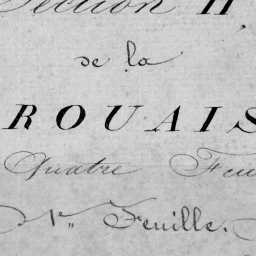 Section H.
de la
ROUAIS
Quatre Feu
1re Feuille.